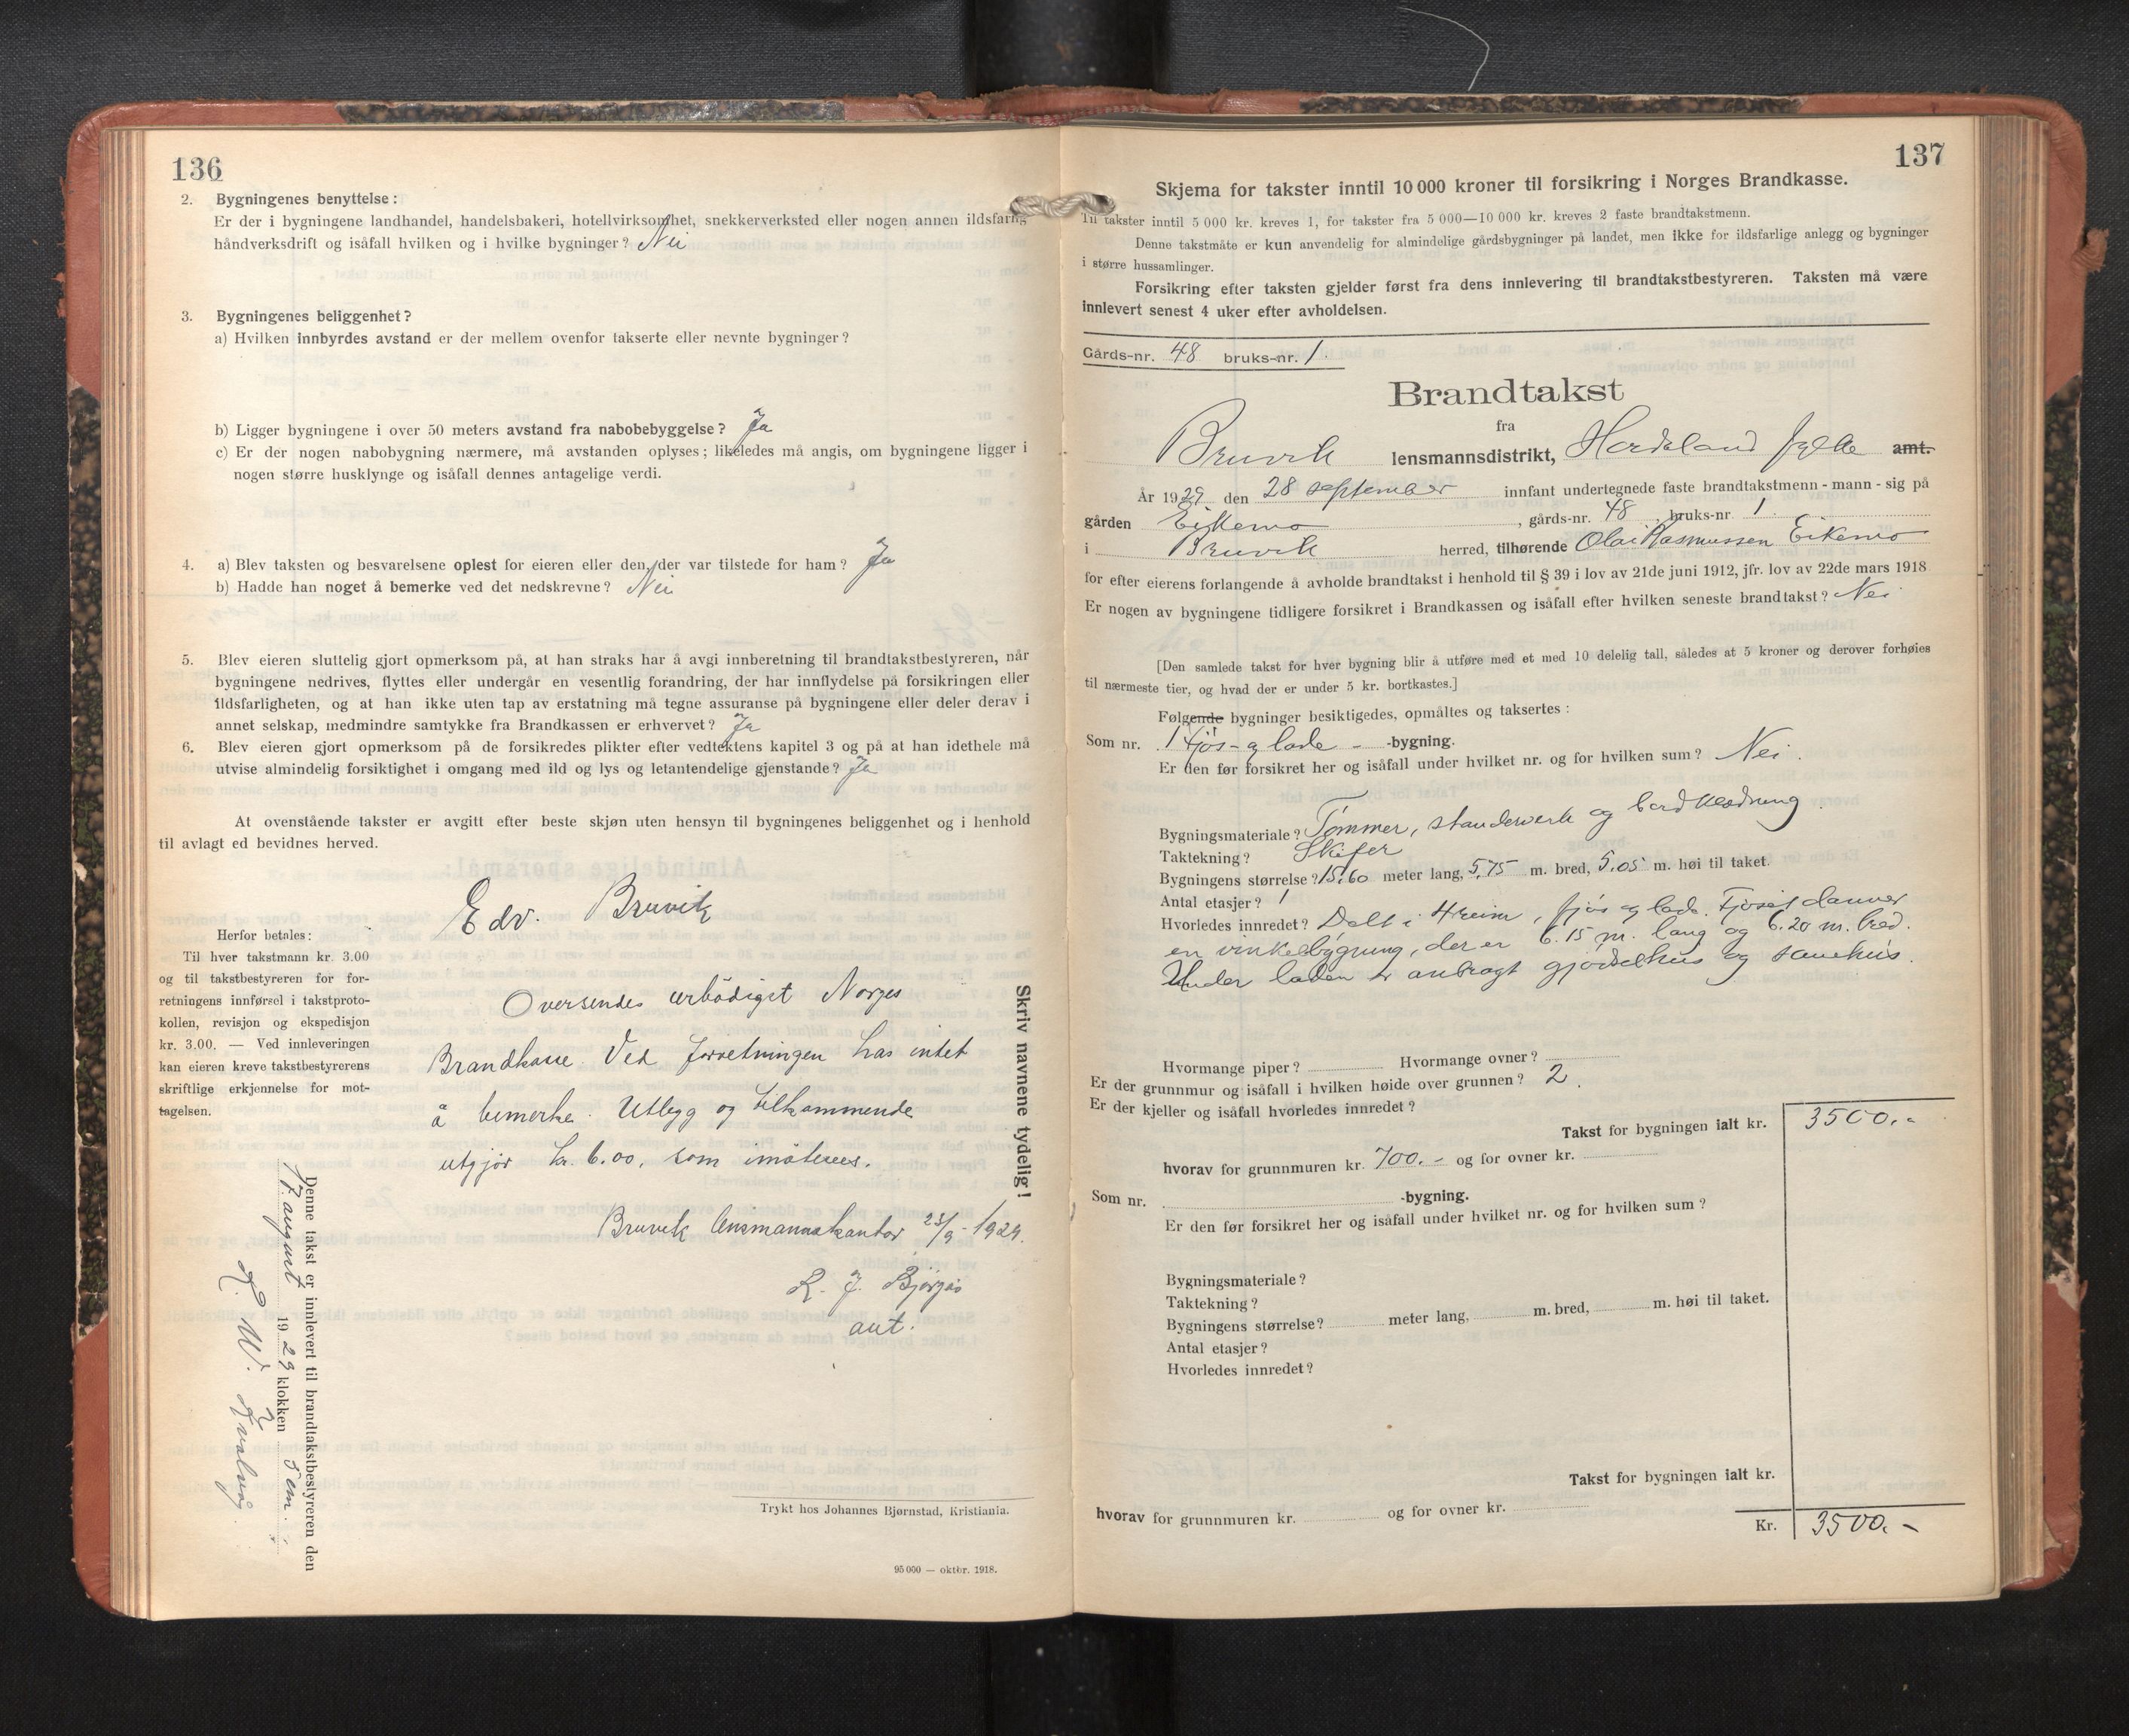 136
2. Bygningenes benyttelse:
Er der i bygningene landhandel, handelsbakeri, hotellvirksomhet, snekkerverksted eller nogen annen ildsfarlig
håndverksdrift og isåfall hvilken og i hvilke bygninger? Nei
3. Bygningenes beliggenhet?
a) Hvilken innbyrdes avstand er der mellem ovenfor takserte eller nevnte bygninger?
b) Ligger bygningene i over 50 meters avstand fra nabobebyggelse? Ja
c) Er der nogen nabobygning nærmere, må avstanden oplyses; likeledes må angis, om bygningene ligger i
nogen større husklynge og isåfall dennes antagelige verdi.
4. a) Blev taksten og besvarelsene oplest for eieren eller den, der var tilstede for ham? Ja
b) Hadde han noget å bemerke ved det nedskrevne? Nei
5. Blev eieren sluttelig gjort opmerksom på, at han straks har å avgi innberetning til brandtakstbestyreren, når
bygningene nedrives, flyttes eller undergår en vesentlig forandring, der har innflydelse på forsikringen eller
ildsfarligheten, og at han ikke uten tap av erstatning må tegne assuranse på bygningene eller deler derav i
annet selskap, medmindre samtykke fra Brandkassen er erhvervet? Ja
6. Blev eieren gjort opmerksom på de forsikredes plikter efter vedtektens kapitel 3 og på at han idethele må
utvise almindelig forsiktighet i omgang med ild og lys og letantendelige gjenstande? Ja
At ovenstående takster er avgitt efter beste skjøn uten hensyn til bygningenes beliggenhet og i henhold
til avlagt ed bevidnes herved.
Edv. Bruvik
Herfor betales:
Til hver takstmann kr. 3.00
og til takstbestyreren for for-
retningens innførsel i takstproto-
kollen, revisjon og ekspedisjon
kr. 3.00. — Ved innleveringen
kan eieren kreve takstbestyrerens
skriftlige erkjennelse for mot-
tagelsen.
Oversendes ærbödigst Norges
Brandkasse. Ved forretningen has intet
å bemerke. Utlegg og tilkommende
utgjör kr. 6.00, som imøtesees.
Bruvik lensmannskontor 23/9-1929.
aut.
Skriv navnene tydelig!
Denne takst er innlevert til brandtakstbestyreren den
17 august 1929 klokken 5 em.
Trykt hos Johannes Bjørnstad, Kristiania.
95000 — oktbr. 1918.
137
Skjema for takster inntil 10 000 kroner til forsikring i Norges Brandkasse.
Til takster inntil 5 000 kr. kreves 1, for takster fra 5 000—10 000 kr. kreves 2 faste brandtakstmenn.
Denne takstmåte er kun anvendelig for almindelige gårdsbygninger på landet, men ikke for ildsfarlige anlegg og bygninger
i større hussamlinger.
Forsikring efter taksten gjelder først fra dens innlevering til brandtakstbestyreren. Taksten må være
innlevert senest 4 uker efter avholdelsen.
Gårds-nr. 48 bruks-nr. 1.
Brandtakst
fra
Bruvik lensmannsdistrikt, Hordaland fylke amt.
År 1929 den 28 september innfant undertegnede faste brandtakstmenn - mann - sig på
gården Eikemo, gårds-nr. 48, bruks-nr. 1.
i Bruvik herred, tilhørende Olai Rasmussen Eikemo
for efter eierens forlangende å avholde brandtakst i henhold til § 39 i lov av 21de juni 1912, jfr. lov av 22de mars 1918
Er nogen av bygningene tidligere forsikret i Brandkassen og isåfall efter hvilken seneste brandtakst? Nei
[Den samlede takst for hver bygning blir å utføre med et med 10 delelig tall, således at 5 kroner og derover forhøies
til nærmeste tier, og hvad der er under 5 kr. bortkastes.]
Følgende bygninger besiktigedes, opmåltes og taksertes:
Som nr. 1 fjös- og lade- -bygning.
Er den før forsikret her og isåfall under hvilket nr. og for hvilken sum? Nei.
Bygningsmateriale? Tömmer, standerverk og bordklædning
Taktekning? Skifer
Bygningens størrelse? 15,60 meter lang, 5,75 m. bred, 5,05 m. høi til taket.
Antal etasjer? 1
Hvorledes innredet? Delt i 4 rum, fjös og lade. Fjöset danner
en vinkelbygning, der er 6.15 m. lang og 6.20 m. bred.
Under laden er anbragt gjödselhus og sauehus.
Hvormange piper? Hvormange ovner?
Er der grunnmur og isåfall i hvilken høide over grunnen? 2.
Er der kjeller og isåfall hvorledes innredet?
Takst for bygningen ialt kr. 3500.-
hvorav for grunnmuren kr. 700.- og for ovner kr.
Som nr. -bygning.
Er den før forsikret her og isåfall under hvilket nr. og for hvilken sum?
Bygningsmateriale?
Taktekning?
Bygningens størrelse? meter lang, m. bred, m. høi til taket.
Antal etasjer?
Hvorledes innredet?
Takst for bygningen ialt kr.
hvorav for grunnmuren kr. og for ovner kr.
Kr. 3500.-